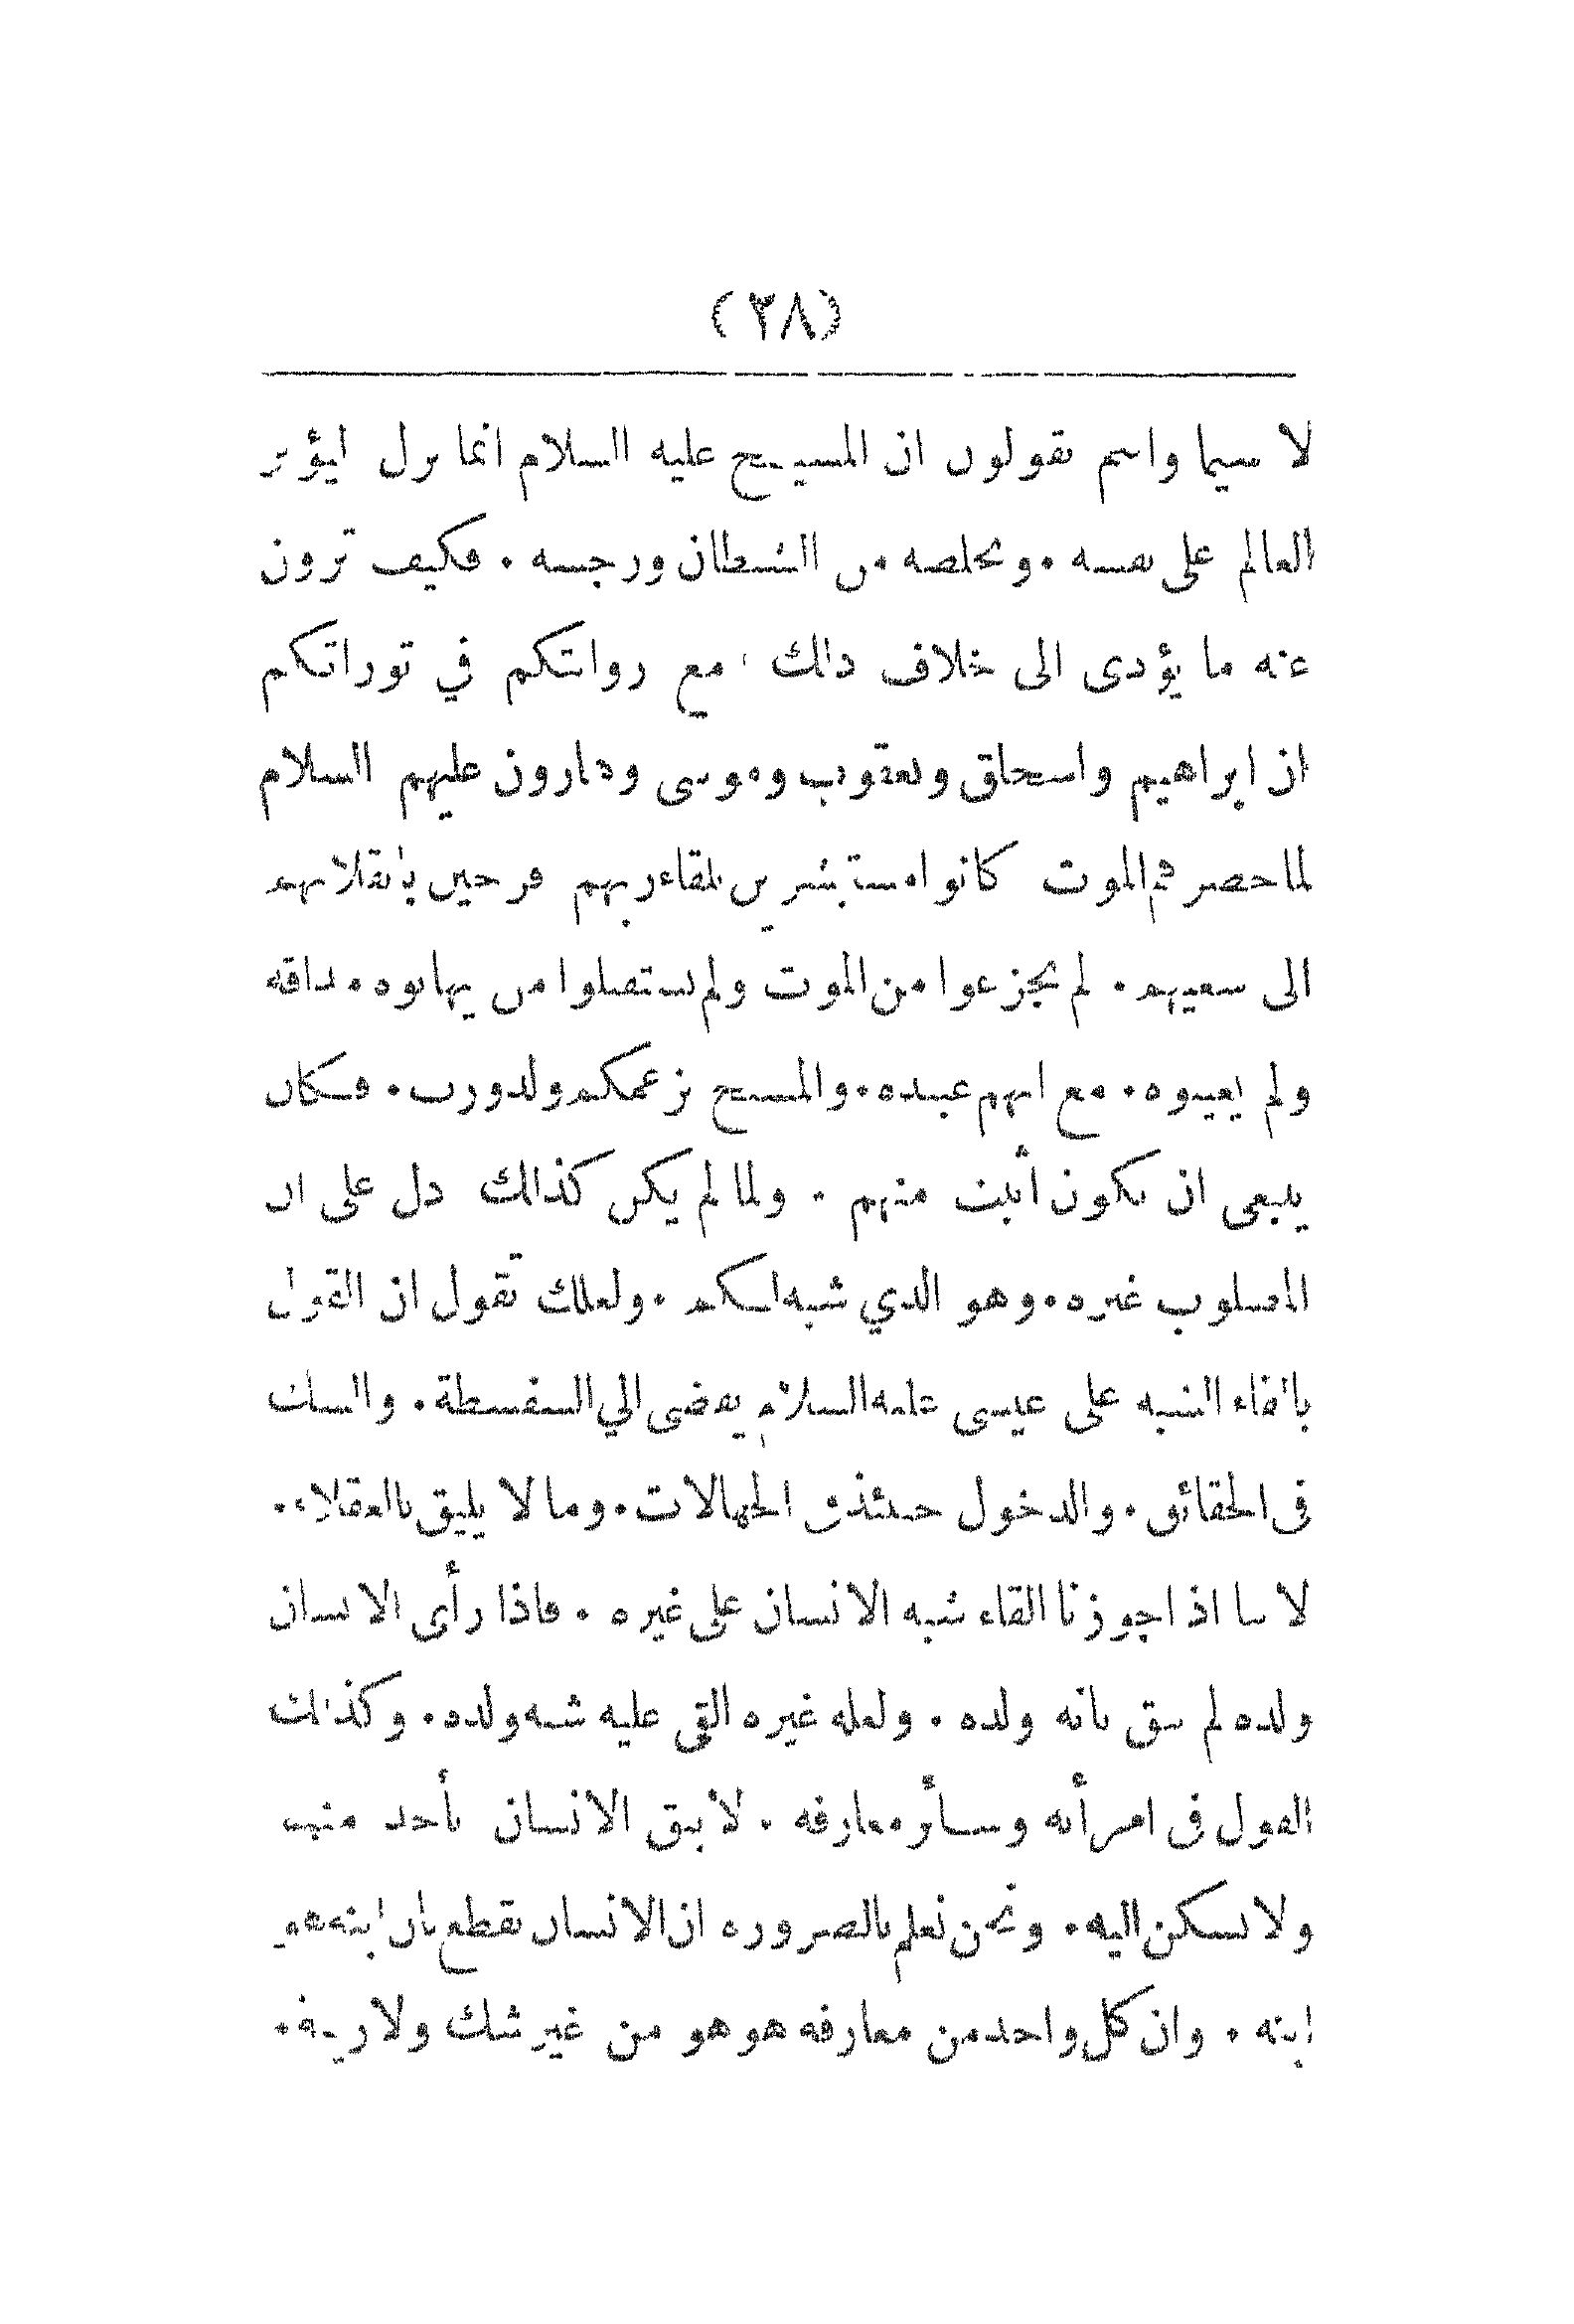 (٣٨)
لا سيما وانتم تقولون ان المسيح عليه السلام انما نزل ليؤثر
العالم على نفسه • ويخلصه من الشيطان ورجسه • فكيف ترون
عنه ما يؤدى الى خلاف ذلك مع روايتكم في توراتكم
ان ابراهيم واسحاق ويعقوب وموسى وهارون عليهم السلام
لما حضرهم الموت كانوا مستبشرين بلقاء ربهم فرحين بانقلابهم
الى سعيهم • لم يجزعوا من الموت ولم يستقيلوا من يهابوه • مذاقه
ولم يعيبوه • مع انهم عبيده • والمسيح بزعمكم ولد ورب • فكان
ينبغى ان يكون أثبت منهم • ولما لم يكن كذالك دل على ان
المصلوب غيره • وهو الذي شبه لسكم • ولعلك تقول ان القول
بالقاء الشبه على عيسى عليه السلام يفضى الي السفسطة • والشك
فى الحقائق • والدخول حينئذ فى الجهالات • وما لا يليق بالعقلاء •
لا سيما اذا جوزنا القاء شبه الانسان على غيره • فاذا رأى الانسان
ولده لم يثق بانه ولده • ولعله غيره القى عليه شبه ولده • وكذالك
القول فى امرأته وسائر معارفه • لا يثق الانسان بأحد منهم
ولا يسكن اليه • ونحن نعلم بالضرورة ان الانسان يقطع بان ابنه هو
ابنه • وان كل واحد من معارفه هو هو من غير شك ولا ريبة •